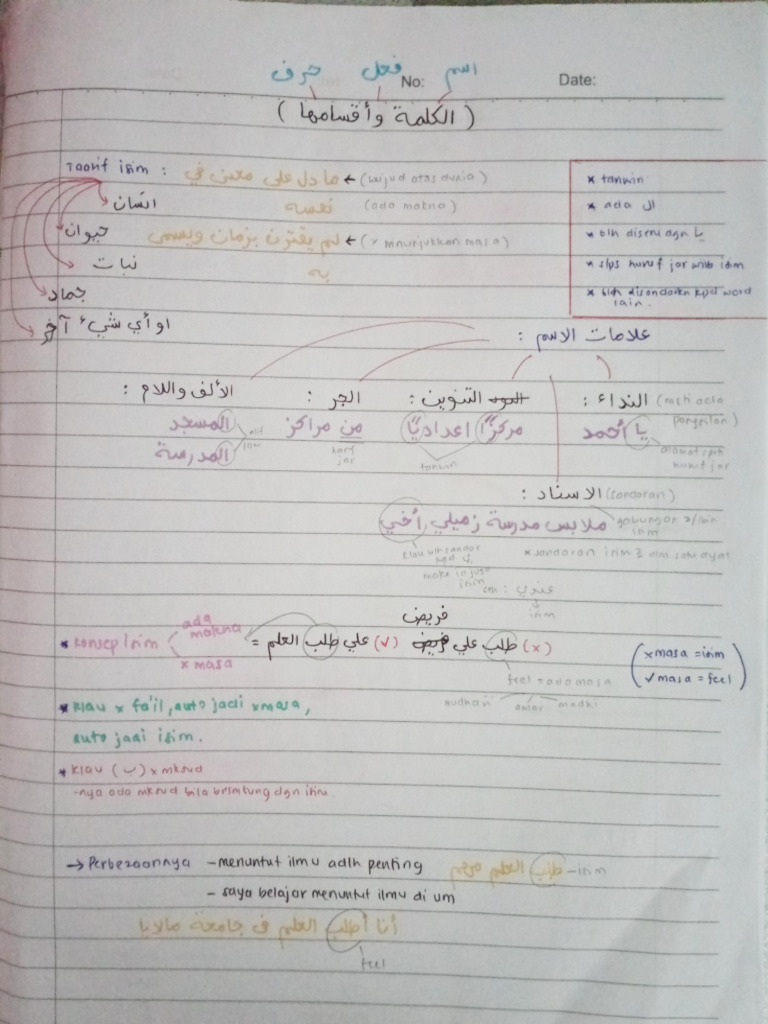 اسم فعل حرف
No: Date:
( الكلمة وأقسامها )
Taarif isim : ما دل على معنى في ← (wujud atas dunia)
نفسه (ada makna)
لم يقترن بزمان ويسمى ← (x menunjukkan masa)
به
انسان
حيوان
نبات
جماد
او أي شيء آخر
* tanwin
* ada ال
* blh diseru dgn يا
* slps huruf jar wajib isim
* blh disandarkan kpd word lain.
علامات الاسم :
النداء : (mesti ada panggilan)
يا أحمد
alamat spt huruf jar
التنوين :
مركزًا اعداديًا
tanwin
الجر :
من مراكز
huruf jar
الألف واللام :
المسجد
المدرسة
alif lam
الاسناد : (sandaran)
ملابس مدرسة زميلي, أخي
gabungan 2/lebih isim
klau blh sandar kpd ي
maka ia just isim
* sandaran isim 2 dlm satu ayat
cth : عندي
isim
* Konsep isim
ada makna
x masa
= طلب العلم
(✓) علي
فريض
طلب علي (x)
feel = ada masa
mudhari amar madhi
(x masa = isim
✓ masa = feel)
* klau x fa'il, auto jadi x masa,
auto jadi isim.
* klau (ب) x mksud
-nya ada mksud bila brsmbung dgn isim.
→ Perbezaannya - menuntut ilmu adlh penting طلب العلم مهم - isim
- saya belajar menuntut ilmu di um
أنا أطلب العلم في جامعة مالايا
feel